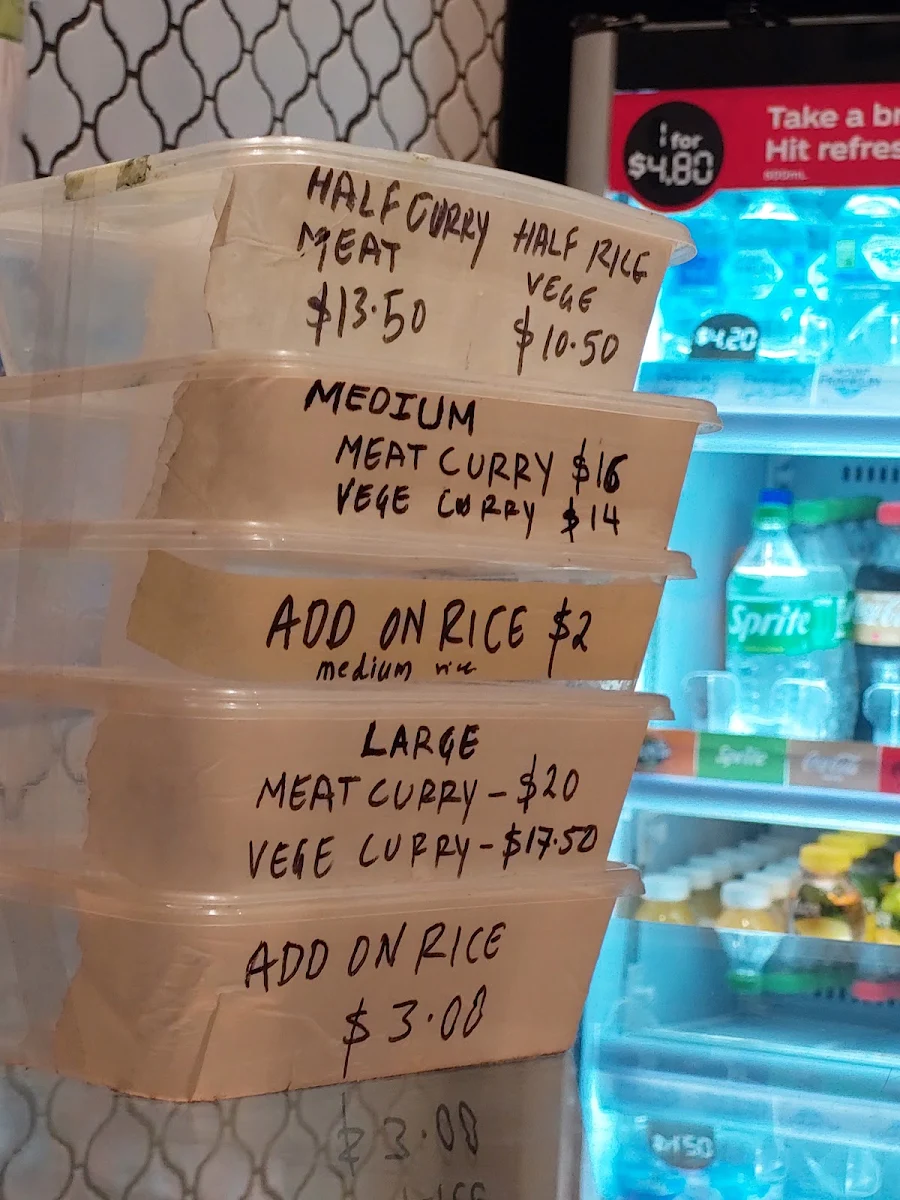 HALF CURRY HALF RICE
MEAT VEGE
$13.50 $10.50
MEDIUM
MEAT CURRY $16
VEGE CURRY $14
ADD ON RICE $2
medium rice
LARGE
MEAT CURRY - $20
VEGE CURRY - $17.50
ADD ON RICE
$3.00
$3.00
1 for
$4.80
Take a br
Hit refres
600mL
$4.20
Sprite
Sprite
Coca-Cola